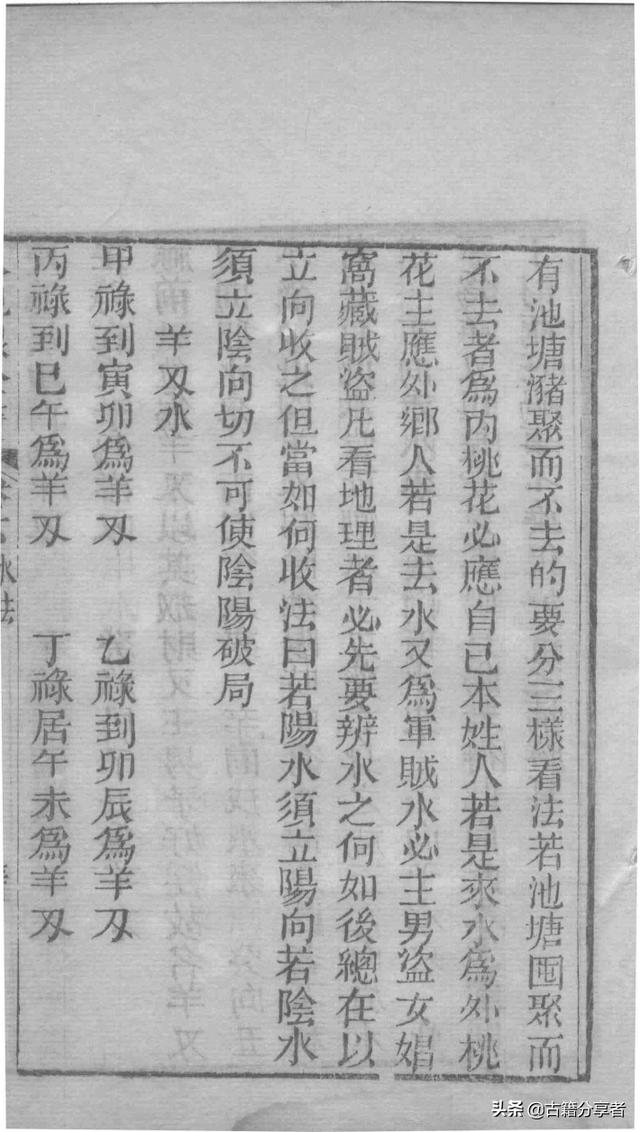 有池塘瀦聚而不去的要分三樣看法若池塘囤聚而
不去者爲內桃花必應自己本姓人若是來水爲外桃
花主應外鄉人若是去水又爲軍賊水必主男盜女娼
窩藏賊盜凡看地理者必先要辨水之何如後總在以
立向收之但當如何收法曰若陽水須立陽向若陰水
須立陰向切不可使陰陽破局
羊刄水
甲祿到寅卯爲羊刄 乙祿到卯辰爲羊刄
丙祿到巳午爲羊刄 丁祿居午未爲羊刄
水法
头条 @古籍分享者